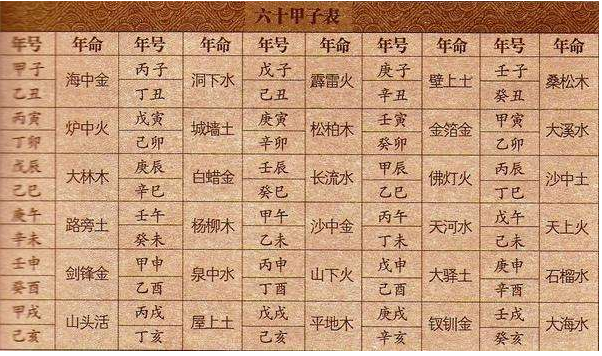 六十甲子表
年号 年命 年号 年命 年号 年命 年号 年命 年号 年命
甲子 丙子 戊子 庚子 壬子
海中金 洞下水 霹雷火 壁上土 桑松木
乙丑 丁丑 己丑 辛丑 癸丑
丙寅 戊寅 庚寅 壬寅 甲寅
炉中火 城墙土 松柏木 金箔金 大溪水
丁卯 己卯 辛卯 癸卯 乙卯
戊辰 庚辰 壬辰 甲辰 丙辰
大林木 白蜡金 长流水 佛灯火 沙中土
己巳 辛巳 癸巳 乙巳 丁巳
庚午 壬午 甲午 丙午 戊午
路旁土 杨柳木 沙中金 天河水 天上火
辛未 癸未 乙未 丁未 乙未
壬申 甲申 丙申 戊申 庚申
剑锋金 泉中水 山下火 大驿土 石榴水
癸酉 乙酉 丁酉 己酉 辛酉
甲戌 丙戌 戊戌 庚戌 壬戌
山头活 屋上土 平地木 钗钏金 大海水
乙亥 丁亥 己亥 辛亥 癸亥